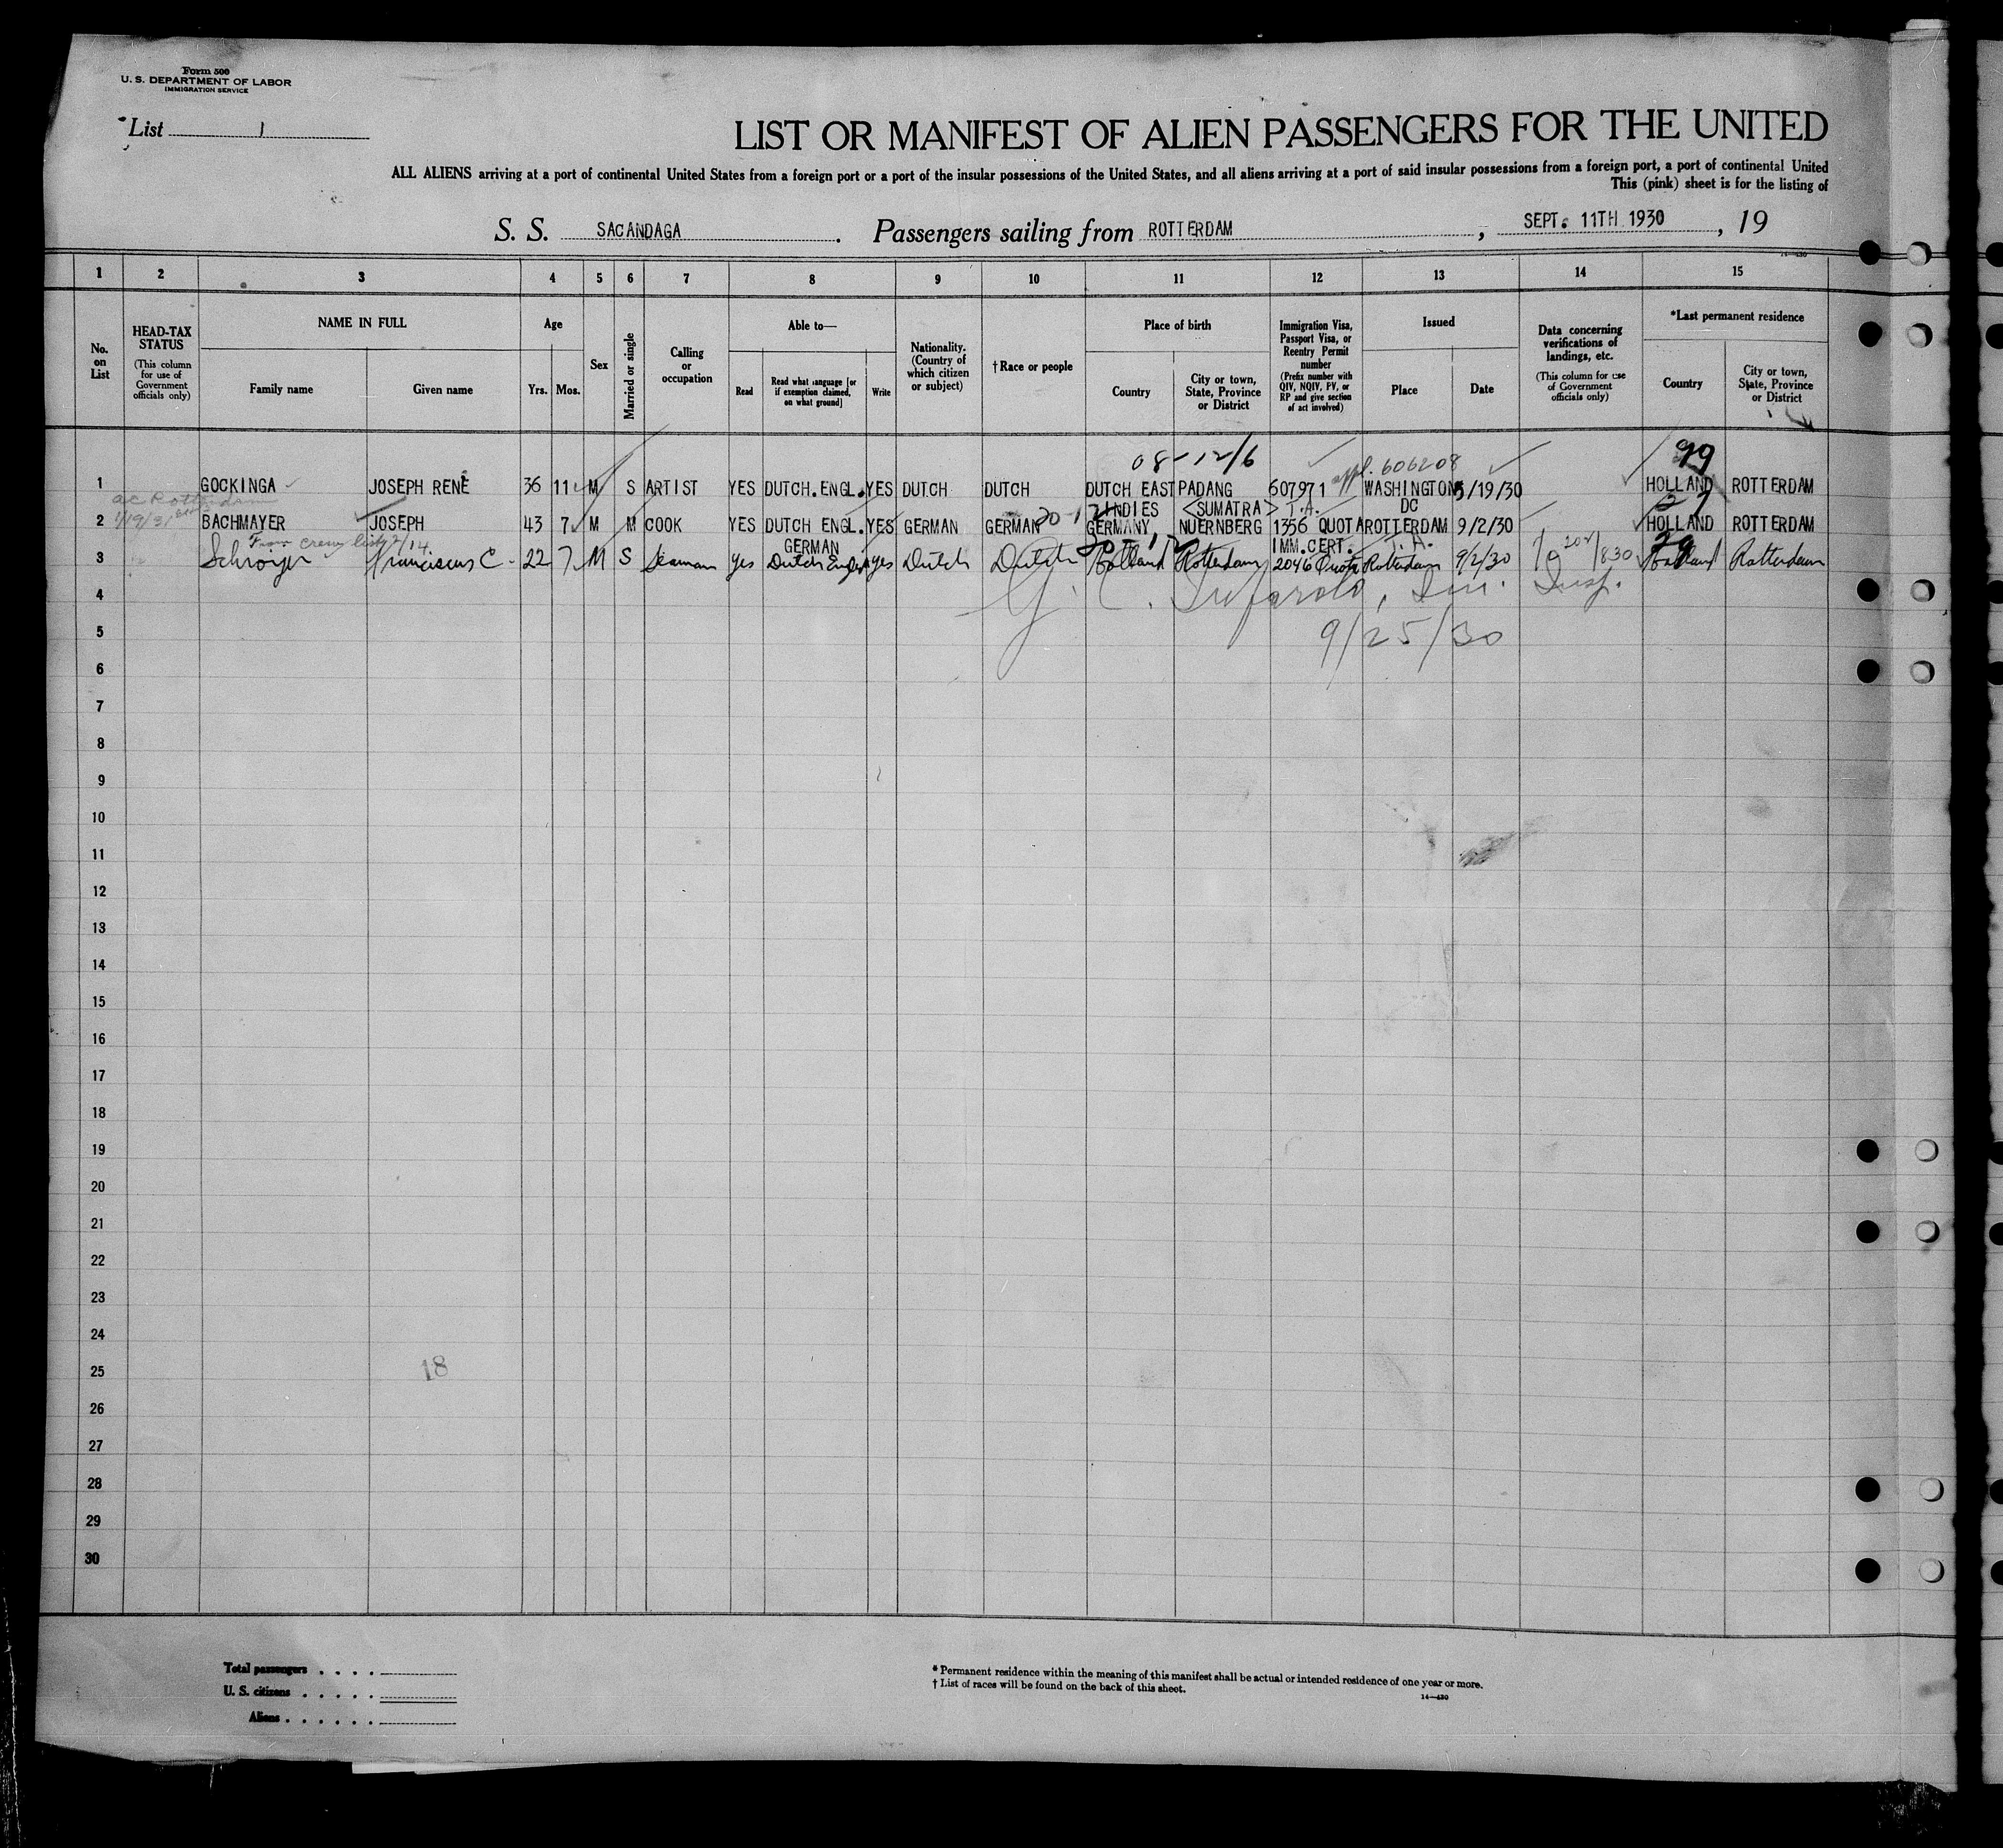 Form 500
U. S. DEPARTMENT OF LABOR
IMMIGRATION SERVICE
List 1
LIST OR MANIFEST OF ALIEN PASSENGERS FOR THE UNITED
ALL ALIENS arriving at a port of continental United States from a foreign port or a port of the insular possessions of the United States, and all aliens arriving at a port of said insular possessions from a foreign port, a port of continental United
This (pink) sheet is for the listing of
S. S. SACANDAGA. Passengers sailing from ROTTERDAM, SEPT. 11TH 1930, 19
14—430
1 2 3 4 5 6 7 8 9 10 11 12 13 14 15
No. on List
HEAD-TAX STATUS
(This column for use of Government officials only)
NAME IN FULL
Family name
Given name
Age
Yrs.
Mos.
Sex
Married or single
Calling or occupation
Able to—
Read
Read what language [or if exemption claimed, on what ground]
Write
Nationality. (Country of which citizen or subject)
† Race or people
Place of birth
Country
City or town, State, Province or District
Immigration Visa, Passport Visa, or Reentry Permit number
(Prefix number with QIV, NQIV, PV, or RP and give section of act involved)
Issued
Place
Date
Data concerning verifications of landings, etc.
(This column for use of Government officials only)
*Last permanent residence
Country
City or town, State, Province or District
08-12/6
appl. 606208
99
1 GOCKINGA JOSEPH RENÉ 36 11 M S ARTIST YES DUTCH. ENGL. YES DUTCH DUTCH DUTCH EAST PADANG 607971 WASHINGTON 5/19/30 HOLLAND ROTTERDAM
INDIES <SUMATRA> T.A. DC
1/19/31
2 BACHMAYER JOSEPH 43 7 M M COOK YES DUTCH ENGL. YES GERMAN GERMAN GERMANY NUERNBERG 1356 QUOTA ROTTERDAM 9/2/30 HOLLAND ROTTERDAM
From crew list 2/14
GERMAN IMM. CERT.
3 Schroijer Franciscus C. 22 7 M S Seaman Yes Dutch Engl. Yes Dutch Dutch Holland Rotterdam 2046 Quota Rotterdam 9/2/30 Holland Rotterdam
4
Insp.
5
9/25/30
6
7
8
9
10
11
12
13
14
15
16
17
18
19
20
21
22
23
24
25
18
26
27
28
29
30
Total passengers . . . .
U. S. citizens . . . . .
Aliens . . . . . .
* Permanent residence within the meaning of this manifest shall be actual or intended residence of one year or more.
† List of races will be found on the back of this sheet.
14—430